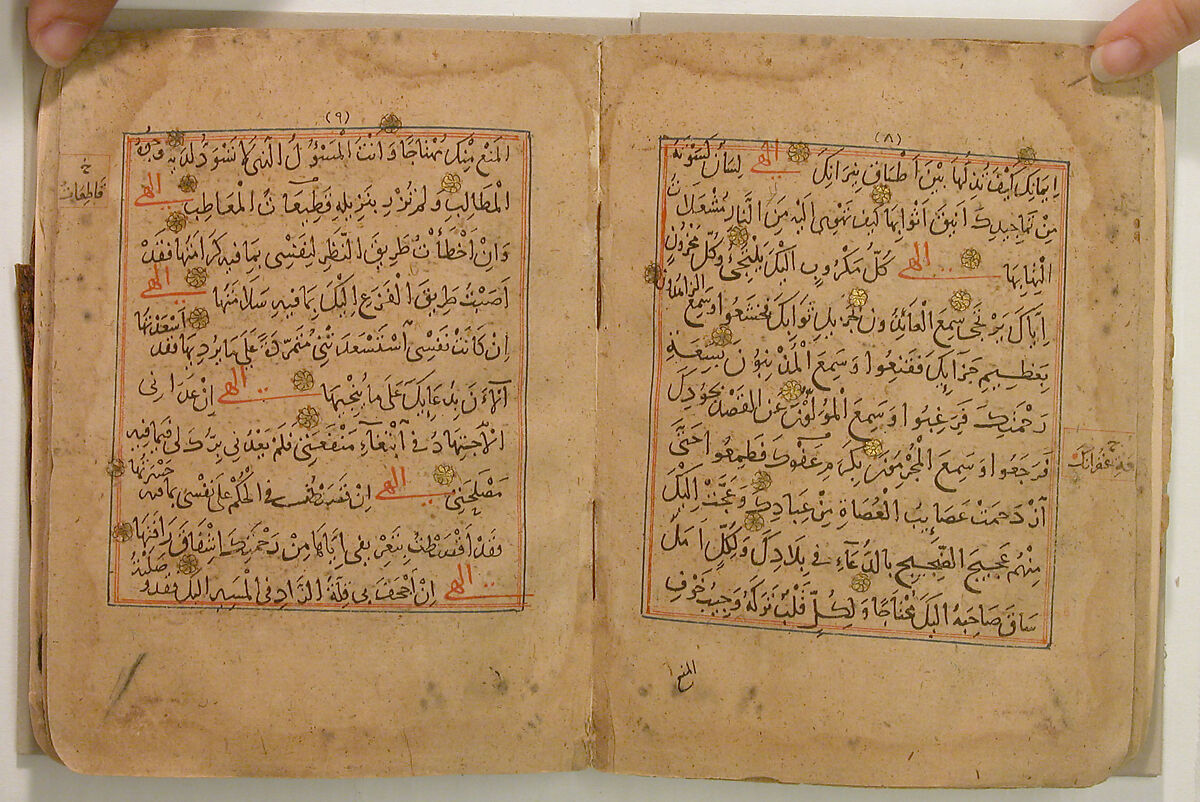 (٨)
ايمانك كيف تذلها بين اطباق نيرانك الهي لسان كسوته
من تماجيدك انيق اثوابها كيف تهوي اليه من النار مشعلات
التهابها الهي كل مكروب اليك يلتجئ وكل محزون
اياك يرتجي سمع العابدون بجزيل ثوابك فخشعوا وسمع الزاهدون
بعظيم جزائك فقنعوا وسمع المذنبون بسعة
رحمتك فرغبوا وسمع المولون عن القصد بجودك
فرجعوا وسمع المجرمون بكرم عفوك فطمعوا حتى
غفرانك
ازدحمت عصايب العصاة من عبادك وعجت اليك
منهم عجيج الضجيج بالدعاء في بلادك ولكل امل
ساق صاحبه اليك محتاجا ولكل قلب تركه وجيب خوف
المنع
(٩)
المنع منك مهتاجا وانت المسؤول الذي لا تسود لديه وجوه
المطالب ولم تزرء بنزيله فظيعات المعاطب الهي
وان اخطأت طريق النظر لنفسي بما فيه كرامتها فقد
اصبت طريق الفزع اليك بما فيه سلامتها الهي
ان كانت نفسي استسعدتني متمردة على ما يرديها فقد اسعدتها
الآن بدعائك على ما ينجيها الهي ان عداني
الاجتهاد في ابتغاء منفعتي فلم يعدني برك لي فيما فيه
مصلحتي الهي ان قسطت في الحكم على نفسي بما فيه حسرتها
فقد اقسطت بتعريفي اياها من رحمتك اشفاق رأفتها
الهي ان اجحف بي قلة الزاد في المسير اليك فقد وصلته